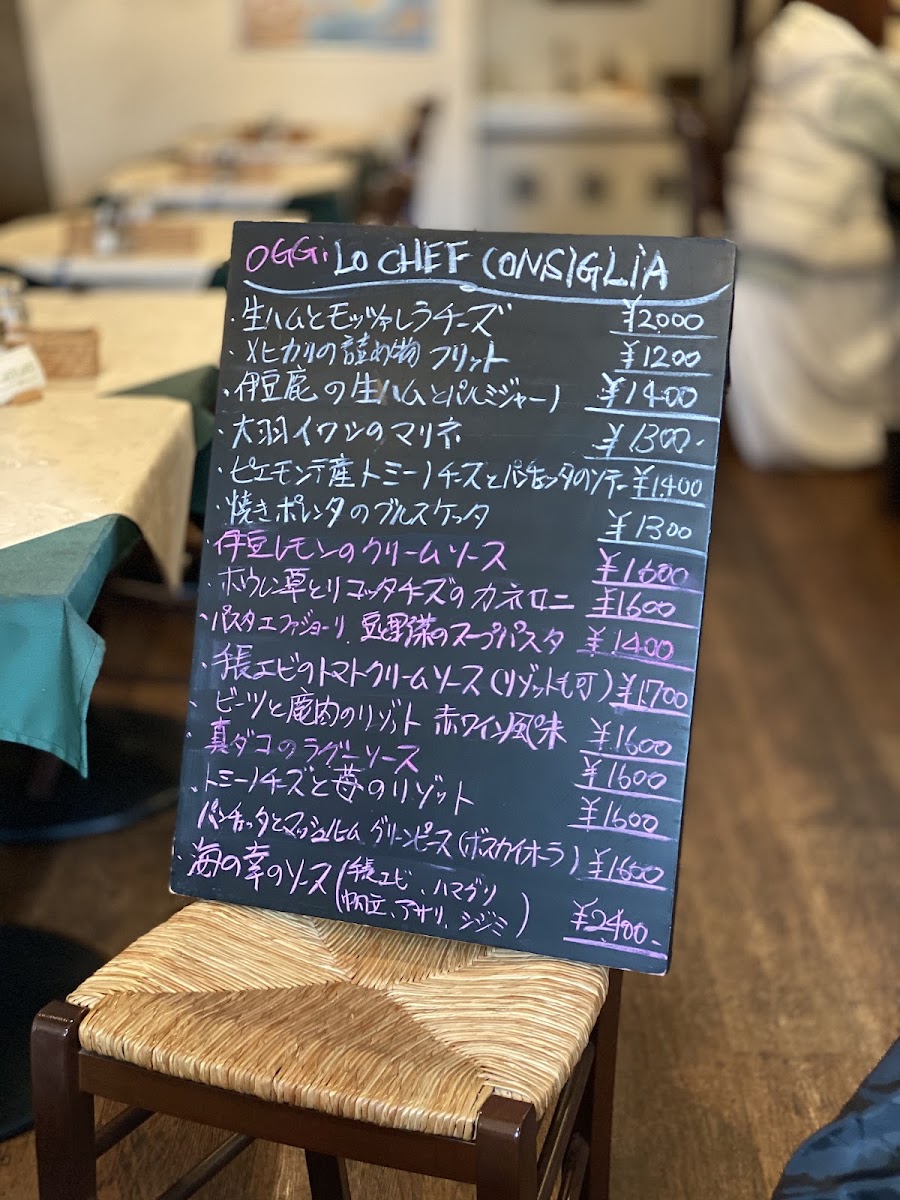 OGGi LO CHEF CONSIGLiA
・生ハムとモッツァレラチーズ ¥2000
・メヒカリの詰め物 フリット ¥1200
・伊豆鹿の生ハムとパルミジャーノ ¥1400
・大羽イワシのマリネ ¥1300-
・ピエモンテ産トミーノチーズとパンチェッタのソテー ¥1400
・焼きポレンタのブルスケッタ ¥1300
・伊豆レモンのクリームソース ¥1600
・ホウレン草とリコッタチーズのカネロニ ¥1600
・パスタエファジョーリ 豆野菜のスープパスタ ¥1400
・手長エビのトマトクリームソース(リゾットも可) ¥1700
・ビーツと鹿肉のリゾット 赤ワイン風味 ¥1600
・真ダコのラグーソース ¥1600
・トミーノチーズと苺のリゾット ¥1600
・パンチェッタとマッシュルーム グリーンピース(ボスカイオーラ) ¥1600
・海の幸のソース(手長エビ、ハマグリ
帆立、アサリ、シジミ) ¥2400-